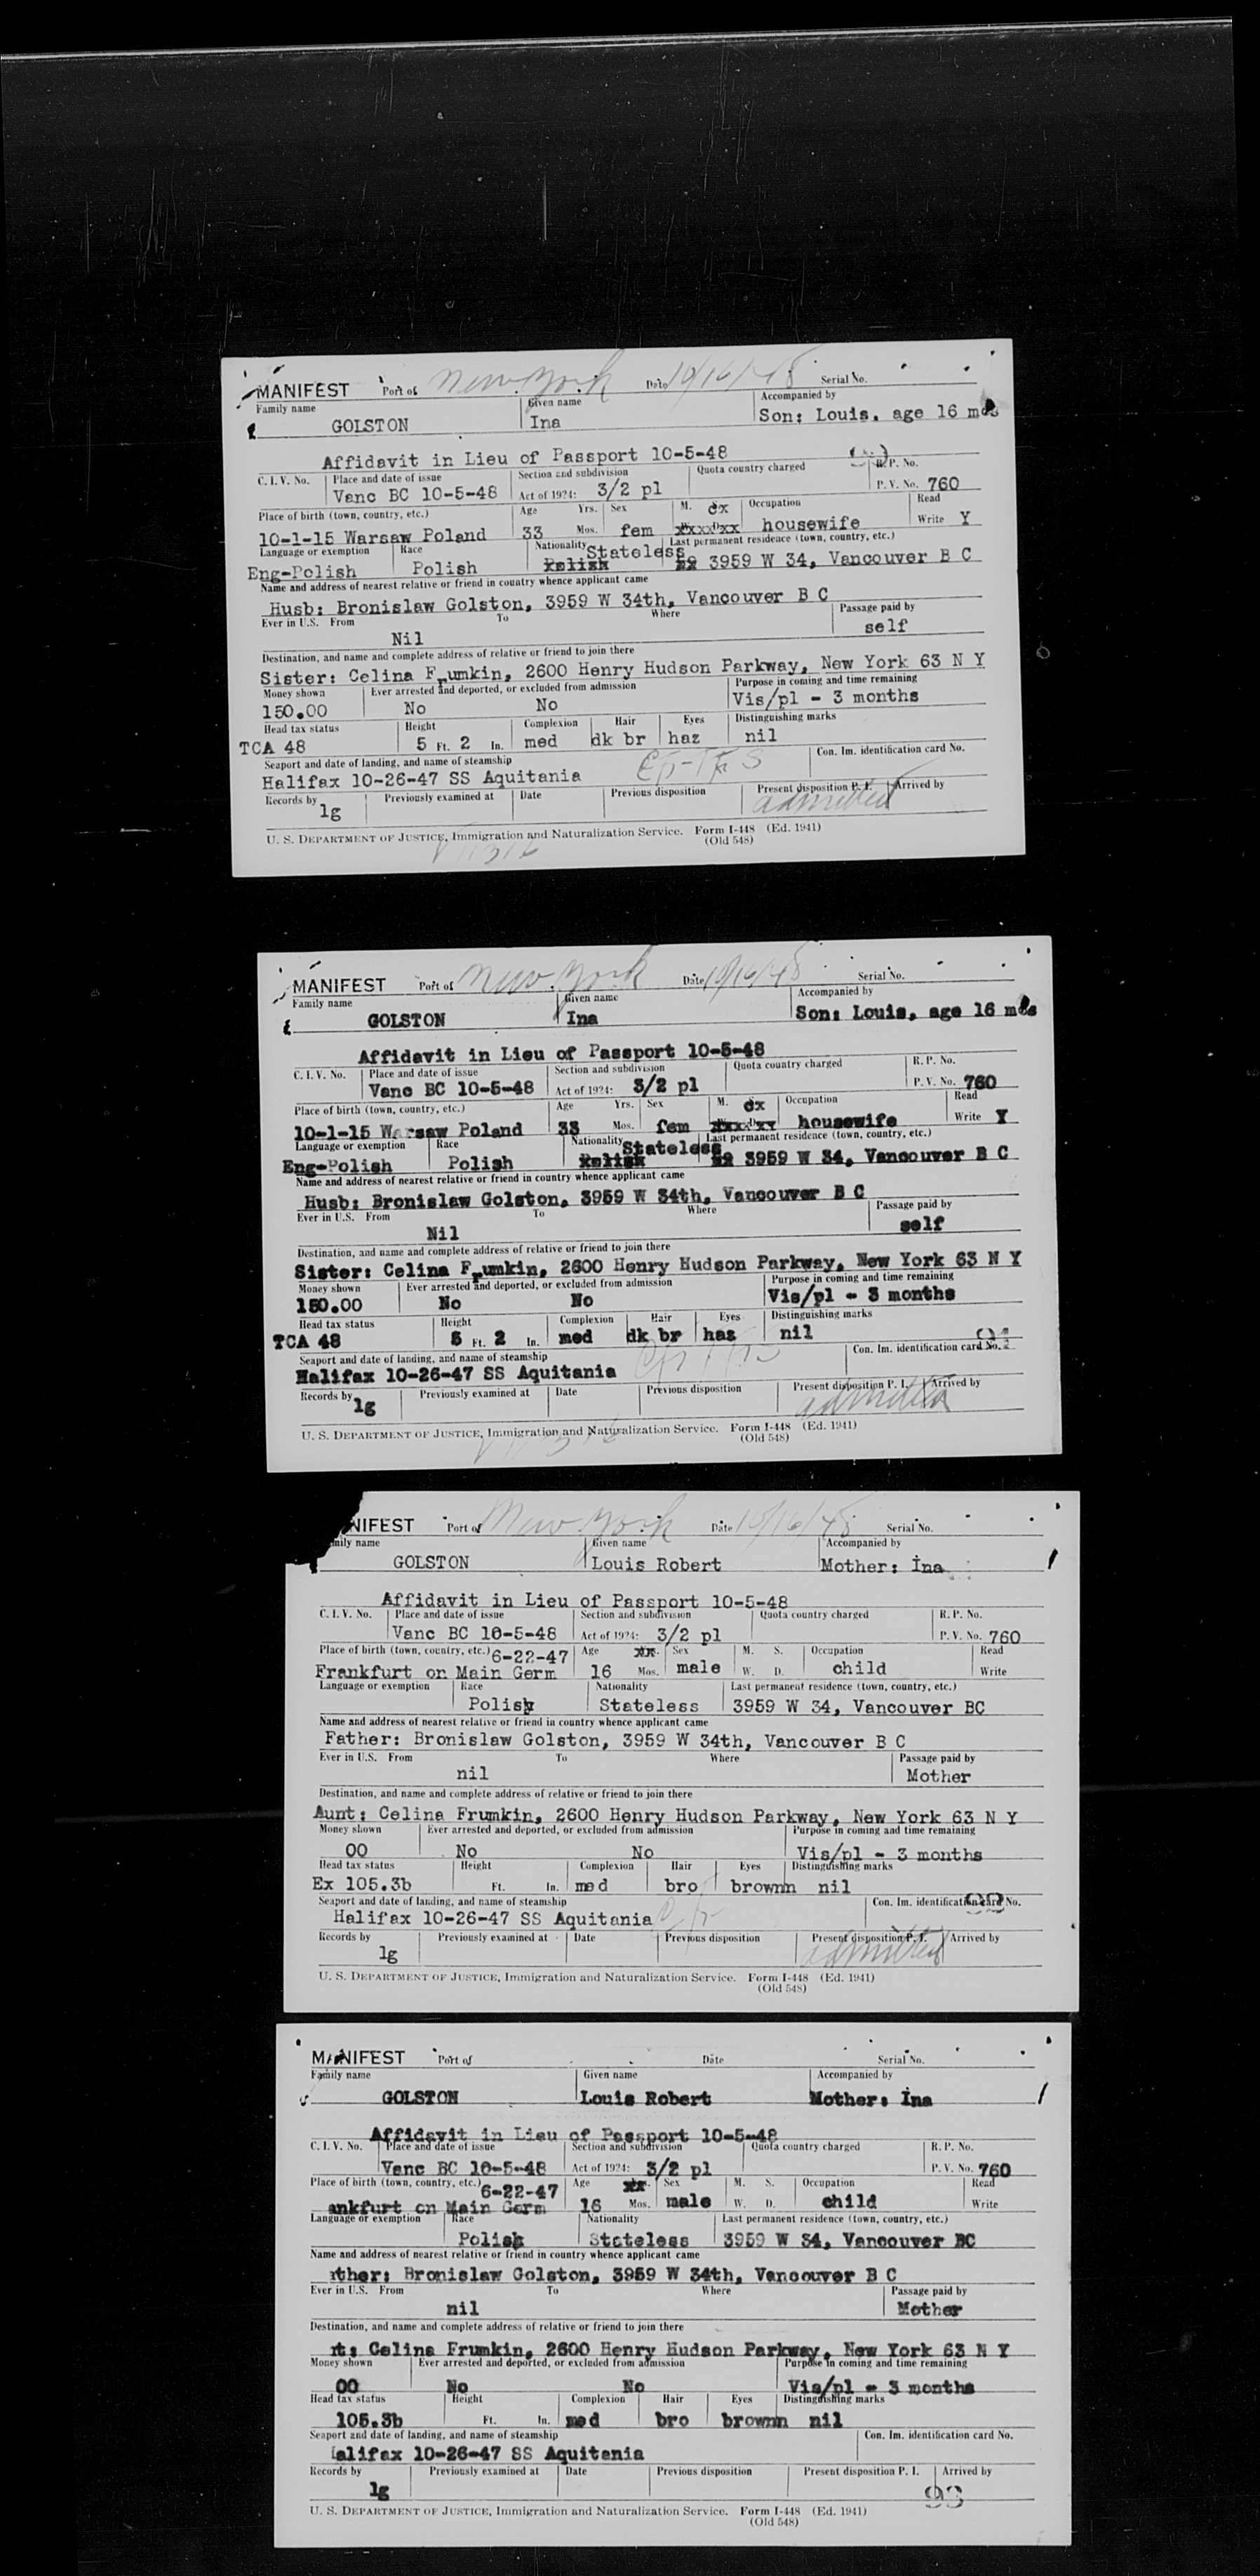 MANIFEST Port of New York Date 10/16/48 Serial No.
Family name Given name Accompanied by
GOLSTON Ina Son: Louis, age 16 mos
Affidavit in Lieu of Passport 10-5-48
C. I. V. No. Place and date of issue Section and subdivision Quota country charged R. P. No.
Vanc BC 10-5-48 Act of 1924: 3/2 pl P. V. No. 760
Place of birth (town, country, etc.) Age Yrs. Sex M. Occupation Read
10-1-15 Warsaw Poland 33 Mos. fem housewife Write Y
Language or exemption Race Nationality Stateless Last permanent residence (town, country, etc.)
Eng-Polish Polish 3959 W 34, Vancouver B C
Name and address of nearest relative or friend in country whence applicant came
Husb: Bronislaw Golston, 3959 W 34th, Vancouver B C
Ever in U.S. From To Where Passage paid by
Nil self
Destination, and name and complete address of relative or friend to join there
Sister: Celina Frumkin, 2600 Henry Hudson Parkway, New York 63 N Y
Money shown Ever arrested and deported, or excluded from admission Purpose in coming and time remaining
150.00 No No Vis/pl - 3 months
Head tax status Height Complexion Hair Eyes Distinguishing marks
TCA 48 5 Ft. 2 In. med dk br haz nil
Seaport and date of landing, and name of steamship Con. Im. identification card No.
Halifax 10-26-47 SS Aquitania
Records by Previously examined at Date Previous disposition Present disposition P. I. Arrived by
lg admitted
U. S. DEPARTMENT OF JUSTICE, Immigration and Naturalization Service. Form I-448 (Ed. 1941)
(Old 548)
MANIFEST Port of New York Date 10/16/48 Serial No.
Family name Given name Accompanied by
GOLSTON Ina Son: Louis, age 16 mos
Affidavit in Lieu of Passport 10-5-48
C. I. V. No. Place and date of issue Section and subdivision Quota country charged R. P. No.
Vanc BC 10-5-48 Act of 1924: 3/2 pl P. V. No. 760
Place of birth (town, country, etc.) Age Yrs. Sex M. Occupation Read
10-1-15 Warsaw Poland 33 Mos. fem housewife Write Y
Language or exemption Race Nationality Stateless Last permanent residence (town, country, etc.)
Eng-Polish Polish 3959 W 34, Vancouver B C
Name and address of nearest relative or friend in country whence applicant came
Husb: Bronislaw Golston, 3959 W 34th, Vancouver B C
Ever in U.S. From To Where Passage paid by
Nil self
Destination, and name and complete address of relative or friend to join there
Sister: Celina Frumkin, 2600 Henry Hudson Parkway, New York 63 N Y
Money shown Ever arrested and deported, or excluded from admission Purpose in coming and time remaining
150.00 No No Vis/pl - 3 months
Head tax status Height Complexion Hair Eyes Distinguishing marks
TCA 48 5 Ft. 2 In. med dk br haz nil
Seaport and date of landing, and name of steamship Con. Im. identification card No.
Halifax 10-26-47 SS Aquitania
Records by Previously examined at Date Previous disposition Present disposition P. I. Arrived by
lg admitted
U. S. DEPARTMENT OF JUSTICE, Immigration and Naturalization Service. Form I-448 (Ed. 1941)
(Old 548)
NIFEST Port of New York Date 10/16/48 Serial No.
mily name Given name Accompanied by
GOLSTON Louis Robert Mother: Ina
Affidavit in Lieu of Passport 10-5-48
C. I. V. No. Place and date of issue Section and subdivision Quota country charged R. P. No.
Vanc BC 10-5-48 Act of 1924: 3/2 pl P. V. No. 760
Place of birth (town, country, etc.) 6-22-47 Age Sex M. S. Occupation Read
Frankfurt on Main Germ 16 Mos. male W. D. child Write
Language or exemption Race Nationality Last permanent residence (town, country, etc.)
Polish Stateless 3959 W 34, Vancouver BC
Name and address of nearest relative or friend in country whence applicant came
Father: Bronislaw Golston, 3959 W 34th, Vancouver B C
Ever in U.S. From To Where Passage paid by
nil Mother
Destination, and name and complete address of relative or friend to join there
Aunt: Celina Frumkin, 2600 Henry Hudson Parkway, New York 63 N Y
Money shown Ever arrested and deported, or excluded from admission Purpose in coming and time remaining
00 No No Vis/pl - 3 months
Head tax status Height Complexion Hair Eyes Distinguishing marks
Ex 105.3b Ft. In. med bro brownn nil
Seaport and date of landing, and name of steamship Con. Im. identification card No.
Halifax 10-26-47 SS Aquitania
Records by Previously examined at Date Previous disposition Present disposition P. I. Arrived by
lg admitted
U. S. DEPARTMENT OF JUSTICE, Immigration and Naturalization Service. Form I-448 (Ed. 1941)
(Old 548)
MANIFEST Port of Date Serial No.
Family name Given name Accompanied by
GOLSTON Louis Robert Mother: Ina
Affidavit in Lieu of Passport 10-5-48
C. I. V. No. Place and date of issue Section and subdivision Quota country charged R. P. No.
Vanc BC 10-5-48 Act of 1924: 3/2 pl P. V. No. 760
Place of birth (town, country, etc.) 6-22-47 Age Sex M. S. Occupation Read
ankfurt on Main Germ 16 Mos. male W. D. child Write
Language or exemption Race Nationality Last permanent residence (town, country, etc.)
Polish Stateless 3959 W 34, Vancouver BC
Name and address of nearest relative or friend in country whence applicant came
ther: Bronislaw Golston, 3959 W 34th, Vancouver B C
Ever in U.S. From To Where Passage paid by
nil Mother
Destination, and name and complete address of relative or friend to join there
nt: Celina Frumkin, 2600 Henry Hudson Parkway, New York 63 N Y
Money shown Ever arrested and deported, or excluded from admission Purpose in coming and time remaining
00 No No Vis/pl - 3 months
Head tax status Height Complexion Hair Eyes Distinguishing marks
105.3b Ft. In. med bro brownn nil
Seaport and date of landing, and name of steamship Con. Im. identification card No.
alifax 10-26-47 SS Aquitania
Records by Previously examined at Date Previous disposition Present disposition P. I. Arrived by
lg 93
U. S. DEPARTMENT OF JUSTICE, Immigration and Naturalization Service. Form I-448 (Ed. 1941)
(Old 548)